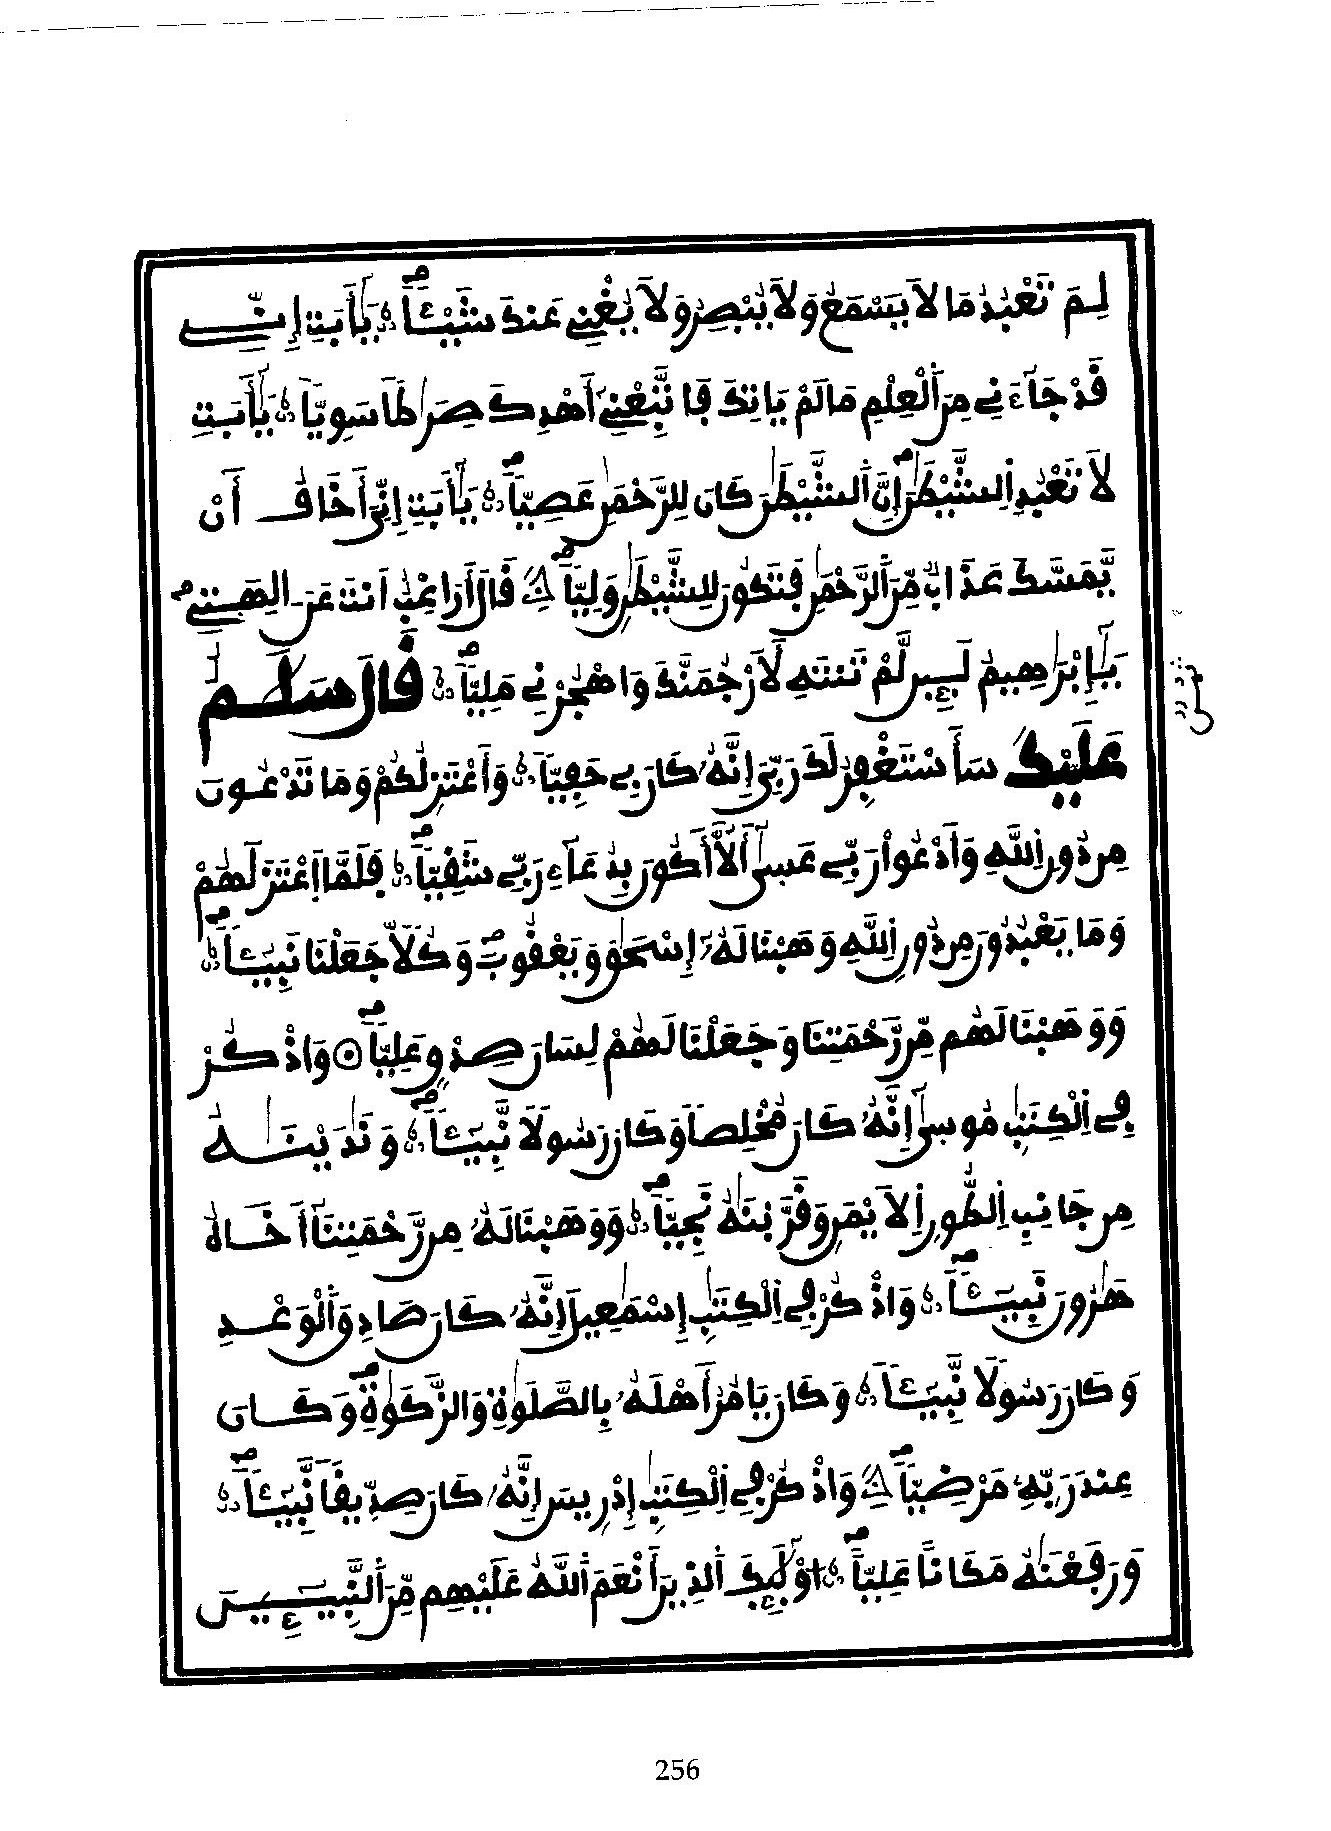 لِمَ تَعْبُدُ مَا لَا يَسْمَعُ وَلَا يُبْصِرُ وَلَا يُغْنِے عَنكَ شَيْـٔاً يَٰٓأَبَتِ إِنِّے
قَدْ جَآءَنِے مِنَ اَ۬لْعِلْمِ مَا لَمْ يَاتِكَ فَاتَّبِعْنِےٓ أَهْدِكَ صِرَٰطاً سَوِيّاً يَٰٓأَبَتِ
لَا تَعْبُدِ اِ۬لشَّيْطَٰنَ إِنَّ اَ۬لشَّيْطَٰنَ كَانَ لِلرَّحْمَٰنِ عَصِيّاً يَٰٓأَبَتِ إِنِّيَ أَخَافُ أَنْ
يَّمَسَّكَ عَذَابٌ مِّنَ اَ۬لرَّحْمَٰنِ فَتَكُونَ لِلشَّيْطَٰنِ وَلِيّاً قَالَ أَرَاغِبٌ اَنتَ عَنَ اٰلِهَتِے
يَٰٓإِبْرَٰهِيمُ لَئِن لَّمْ تَنتَهِ لَأَرْجُمَنَّكَ وَاهْجُرْنِے مَلِيّاً قَالَ سَلَٰمٌ
عَلَيْكَ سَأَسْتَغْفِرُ لَكَ رَبِّيَ إِنَّهُۥ كَانَ بِے حَفِيّاً وَأَعْتَزِلُكُمْ وَمَا تَدْعُونَ
مِن دُونِ اِ۬للَّهِ وَأَدْعُواْ رَبِّے عَسَىٰٓ أَلَّآ أَكُونَ بِدُعَآءِ رَبِّے شَقِيّاً فَلَمَّا اَ۪عْتَزَلَهُمْ
وَمَا يَعْبُدُونَ مِن دُونِ اِ۬للَّهِ وَهَبْنَا لَهُۥٓ إِسْحَٰقَ وَيَعْقُوبَ وَكُلّاً جَعَلْنَا نَبِيٓـٔاً
وَوَهَبْنَا لَهُم مِّن رَّحْمَتِنَا وَجَعَلْنَا لَهُمْ لِسَانَ صِدْقٍ عَلِيّاً وَاذْكُرْ
فِے اِ۬لْكِتَٰبِ مُوسَىٰٓ إِنَّهُۥ كَانَ مُخْلِصاً وَكَانَ رَسُولاً نَّبِيٓـٔاً وَنَٰدَيْنَٰهُ
مِن جَانِبِ اِ۬لطُّورِ اِ۬لَايْمَنِ وَقَرَّبْنَٰهُ نَجِيّاً وَوَهَبْنَا لَهُۥ مِن رَّحْمَتِنَآ أَخَاهُ
هَٰرُونَ نَبِيٓـٔاً وَاذْكُرْ فِے اِ۬لْكِتَٰبِ إِسْمَٰعِيلَ إِنَّهُۥ كَانَ صَادِقَ اَ۬لْوَعْدِ
وَكَانَ رَسُولاً نَّبِيٓـٔاً وَكَانَ يَامُرُ أَهْلَهُۥ بِالصَّلَوٰةِ وَالزَّكَوٰةِ وَكَانَ
عِندَ رَبِّهِۦ مَرْضِيّاً وَاذْكُرْ فِے اِ۬لْكِتَٰبِ إِدْرِيسَ إِنَّهُۥ كَانَ صِدِّيقاً نَّبِيٓـٔاً
وَرَفَعْنَٰهُ مَكَاناً عَلِيّاً اُوْلَٰٓئِكَ اَ۬لذِينَ أَنْعَمَ اَ۬للَّهُ عَلَيْهِم مِّنَ اَ۬لنَّبِيٓـِٕينَ
256